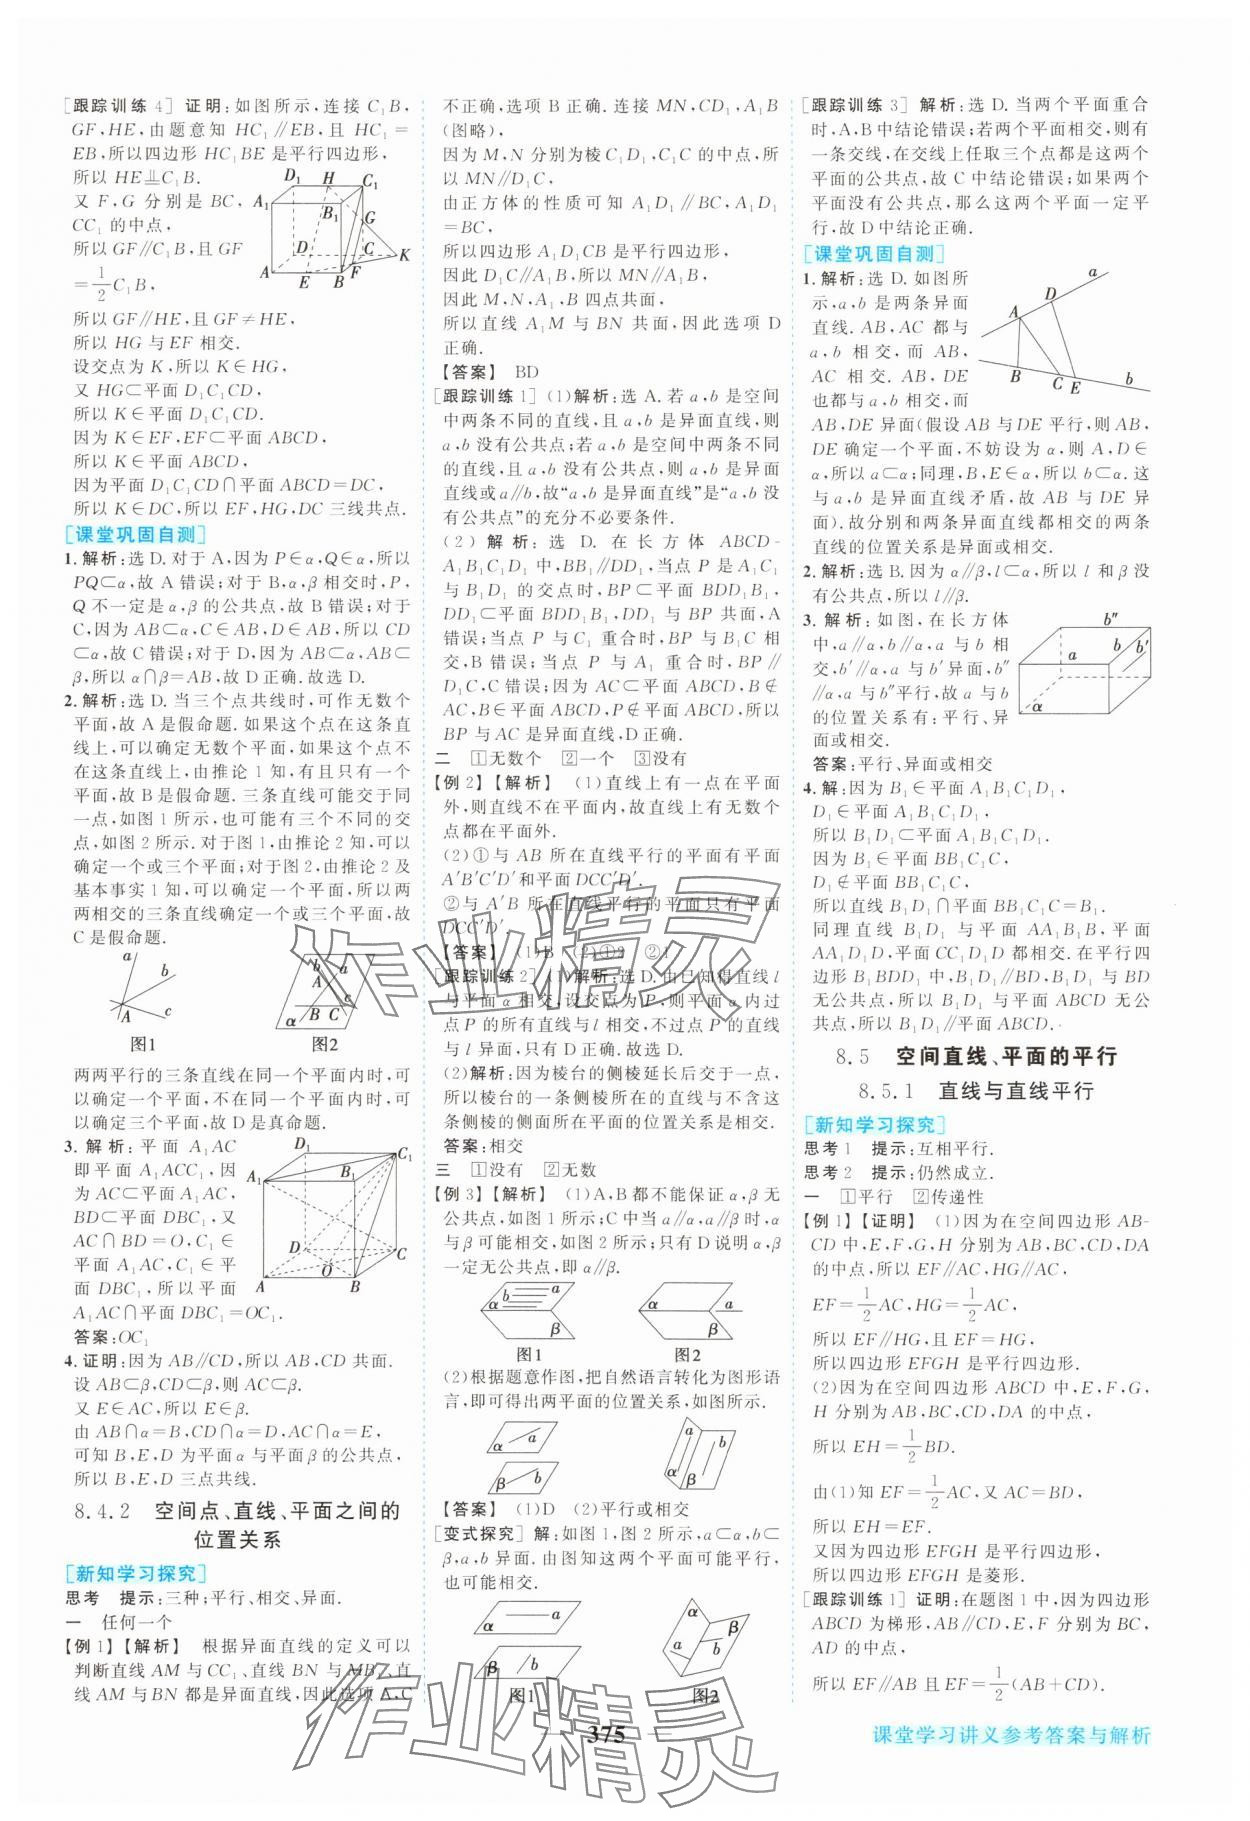 [跟踪训练4] 证明:如图所示,连接 C₁B,
GF,HE,由题意知 HC₁∥EB,且 HC₁=
EB,所以四边形 HC₁BE 是平行四边形,
所以 HE⊥∥C₁B.
又 F,G 分别是 BC,
CC₁ 的中点,
所以 GF∥C₁B,且 GF
=1/2 C₁B,
所以 GF∥HE,且 GF≠HE,
所以 HG 与 EF 相交.
设交点为 K,所以 K∈HG,
又 HG⊂平面 D₁C₁CD,
所以 K∈平面 D₁C₁CD.
因为 K∈EF,EF⊂平面 ABCD,
所以 K∈平面 ABCD,
因为平面 D₁C₁CD∩平面 ABCD=DC,
所以 K∈DC,所以 EF,HG,DC 三线共点.
[课堂巩固自测]
1. 解析:选 D. 对于 A,因为 P∈α,Q∈α,所以
PQ⊂α,故 A 错误;对于 B,α,β 相交时,P,
Q 不一定是 α,β 的公共点,故 B 错误;对于
C,因为 AB⊂α,C∈AB,D∈AB,所以 CD
⊂α,故 C 错误;对于 D,因为 AB⊂α,AB⊂
β,所以 α∩β=AB,故 D 正确. 故选 D.
2. 解析:选 D. 当三个点共线时,可作无数个
平面,故 A 是假命题. 如果这个点在这条直
线上,可以确定无数个平面,如果这个点不
在这条直线上,由推论 1 知,有且只有一个
平面,故 B 是假命题. 三条直线可能交于同
一点,如图 1 所示,也可能有三个不同的交
点,如图 2 所示. 对于图 1,由推论 2 知,可以
确定一个或三个平面;对于图 2,由推论 2 及
基本事实 1 知,可以确定一个平面,所以两
两相交的三条直线确定一个或三个平面,故
C 是假命题.
图1 图2
两两平行的三条直线在同一个平面内时,可
以确定一个平面,不在同一个平面内时,可
以确定三个平面,故 D 是真命题.
3. 解析:平面 A₁AC
即平面 A₁ACC₁,因
为 AC⊂平面 A₁AC,
BD⊂平面 DBC₁,又
AC∩BD=O,C₁∈
平面 A₁AC,C₁∈平
面 DBC₁,所以平面
A₁AC∩平面 DBC₁=OC₁.
答案:OC₁
4. 证明:因为 AB∥CD,所以 AB,CD 共面.
设 AB⊂β,CD⊂β,则 AC⊂β.
又 E∈AC,所以 E∈β.
由 AB∩α=B,CD∩α=D,AC∩α=E,
可知 B,E,D 为平面 α 与平面 β 的公共点,
所以 B,E,D 三点共线.
8.4.2 空间点、直线、平面之间的
位置关系
[新知学习探究]
思考 提示:三种;平行、相交、异面.
一 任何一个
【例1】【解析】 根据异面直线的定义可以
判断直线 AM 与 CC₁、直线 BN 与 MB₁、直
线 AM 与 BN 都是异面直线,因此选项 A,C
不正确,选项 B 正确. 连接 MN,CD₁,A₁B
(图略),
因为 M,N 分别为棱 C₁D₁,C₁C 的中点,所
以 MN∥D₁C,
由正方体的性质可知 A₁D₁∥BC,A₁D₁
=BC,
所以四边形 A₁D₁CB 是平行四边形,
因此 D₁C∥A₁B,所以 MN∥A₁B,
因此 M,N,A₁,B 四点共面,
所以直线 A₁M 与 BN 共面,因此选项 D
正确.
【答案】 BD
[跟踪训练1] (1)解析:选 A. 若 a,b 是空间
中两条不同的直线,且 a,b 是异面直线,则
a,b 没有公共点;若 a,b 是空间中两条不同
的直线,且 a,b 没有公共点,则 a,b 是异面
直线或 a∥b,故“a,b 是异面直线”是“a,b 没
有公共点”的充分不必要条件.
(2) 解析:选 D. 在长方体 ABCD-
A₁B₁C₁D₁ 中,BB₁∥DD₁,当点 P 是 A₁C₁
与 B₁D₁ 的交点时,BP⊂平面 BDD₁B₁,
DD₁⊂平面 BDD₁B₁,DD₁ 与 BP 共面,A
错误;当点 P 与 C₁ 重合时,BP 与 B₁C 相
交,B 错误;当点 P 与 A₁ 重合时,BP∥
D₁C,C 错误;因为 AC⊂平面 ABCD,B∉
AC,B∈平面 ABCD,P∉平面 ABCD,所以
BP 与 AC 是异面直线,D 正确.
二 ①无数个 ②一个 ③没有
【例2】【解析】 (1)直线上有一点在平面
外,则直线不在平面内,故直线上有无数个
点都在平面外.
(2)①与 AB 所在直线平行的平面有平面
A′B′C′D′和平面 DCC′D′.
②与 A′B 所在直线平行的平面只有平面
DCC′D′.
【答案】 (1)B (2)①2 ②1
[跟踪训练2] (1)解析:选 D. 由已知得直线 l
与平面 α 相交,设交点为 P,则平面 α 内过
点 P 的所有直线与 l 相交,不过点 P 的直线
与 l 异面,只有 D 正确. 故选 D.
(2)解析:因为棱台的侧棱延长后交于一点,
所以棱台的一条侧棱所在的直线与不含这
条侧棱的侧面所在平面的位置关系是相交.
答案:相交
三 ①没有 ②无数
【例3】【解析】 (1)A,B 都不能保证 α,β 无
公共点,如图 1 所示;C 中当 a∥α,a∥β 时,α
与 β 可能相交,如图 2 所示;只有 D 说明 α,β
一定无公共点,即 α∥β.
图1 图2
(2)根据题意作图,把自然语言转化为图形语
言,即可得出两平面的位置关系,如图所示.
【答案】 (1)D (2)平行或相交
[变式探究] 解:如图 1,图 2 所示,a⊂α,b⊂
β,a,b 异面. 由图知这两个平面可能平行,
也可能相交.
图1 图2
[跟踪训练3] 解析:选 D. 当两个平面重合
时,A,B 中结论错误;若两个平面相交,则有
一条交线,在交线上任取三个点都是这两个
平面的公共点,故 C 中结论错误;如果两个
平面没有公共点,那么这两个平面一定平
行,故 D 中结论正确.
[课堂巩固自测]
1. 解析:选 D. 如图所
示,a,b 是两条异面
直线. AB,AC 都与
a,b 相交,而 AB,
AC 相交. AB,DE
也都与 a,b 相交,而
AB,DE 异面(假设 AB 与 DE 平行,则 AB,
DE 确定一个平面,不妨设为 α,则 A,D∈
α,所以 a⊂α;同理,B,E∈α,所以 b⊂α. 这
与 a,b 是异面直线矛盾,故 AB 与 DE 异
面). 故分别和两条异面直线都相交的两条
直线的位置关系是异面或相交.
2. 解析:选 B. 因为 α∥β,l⊂α,所以 l 和 β 没
有公共点,所以 l∥β.
3. 解析:如图,在长方体
中,a∥α,b∥α,a 与 b 相
交,b′∥α,a 与 b′异面,b″
∥α,a 与 b″平行,故 a 与 b
的位置关系有:平行、异
面或相交.
答案:平行、异面或相交
4. 解:因为 B₁∈平面 A₁B₁C₁D₁,
D₁∈平面 A₁B₁C₁D₁,
所以 B₁D₁⊂平面 A₁B₁C₁D₁.
因为 B₁∈平面 BB₁C₁C,
D₁∉平面 BB₁C₁C,
所以直线 B₁D₁∩平面 BB₁C₁C=B₁.
同理直线 B₁D₁ 与平面 AA₁B₁B,平面
AA₁D₁D,平面 CC₁D₁D 都相交. 在平行四
边形 B₁BDD₁ 中,B₁D₁∥BD,B₁D₁ 与 BD
无公共点,所以 B₁D₁ 与平面 ABCD 无公
共点,所以 B₁D₁∥平面 ABCD.
8.5 空间直线、平面的平行
8.5.1 直线与直线平行
[新知学习探究]
思考1 提示:互相平行.
思考2 提示:仍然成立.
一 ①平行 ②传递性
【例1】【证明】 (1)因为在空间四边形 AB-
CD 中,E,F,G,H 分别为 AB,BC,CD,DA
的中点,所以 EF∥AC,HG∥AC,
EF=1/2 AC,HG=1/2 AC,
所以 EF∥HG,且 EF=HG,
所以四边形 EFGH 是平行四边形.
(2)因为在空间四边形 ABCD 中,E,F,G,
H 分别为 AB,BC,CD,DA 的中点,
所以 EH=1/2 BD.
由(1)知 EF=1/2 AC,又 AC=BD,
所以 EH=EF.
又因为四边形 EFGH 是平行四边形,
所以四边形 EFGH 是菱形.
[跟踪训练1] 证明:在题图 1 中,因为四边形
ABCD 为梯形,AB∥CD,E,F 分别为 BC,
AD 的中点,
所以 EF∥AB 且 EF=1/2(AB+CD).
375
课堂学习讲义参考答案与解析
作业精灵
作业精灵